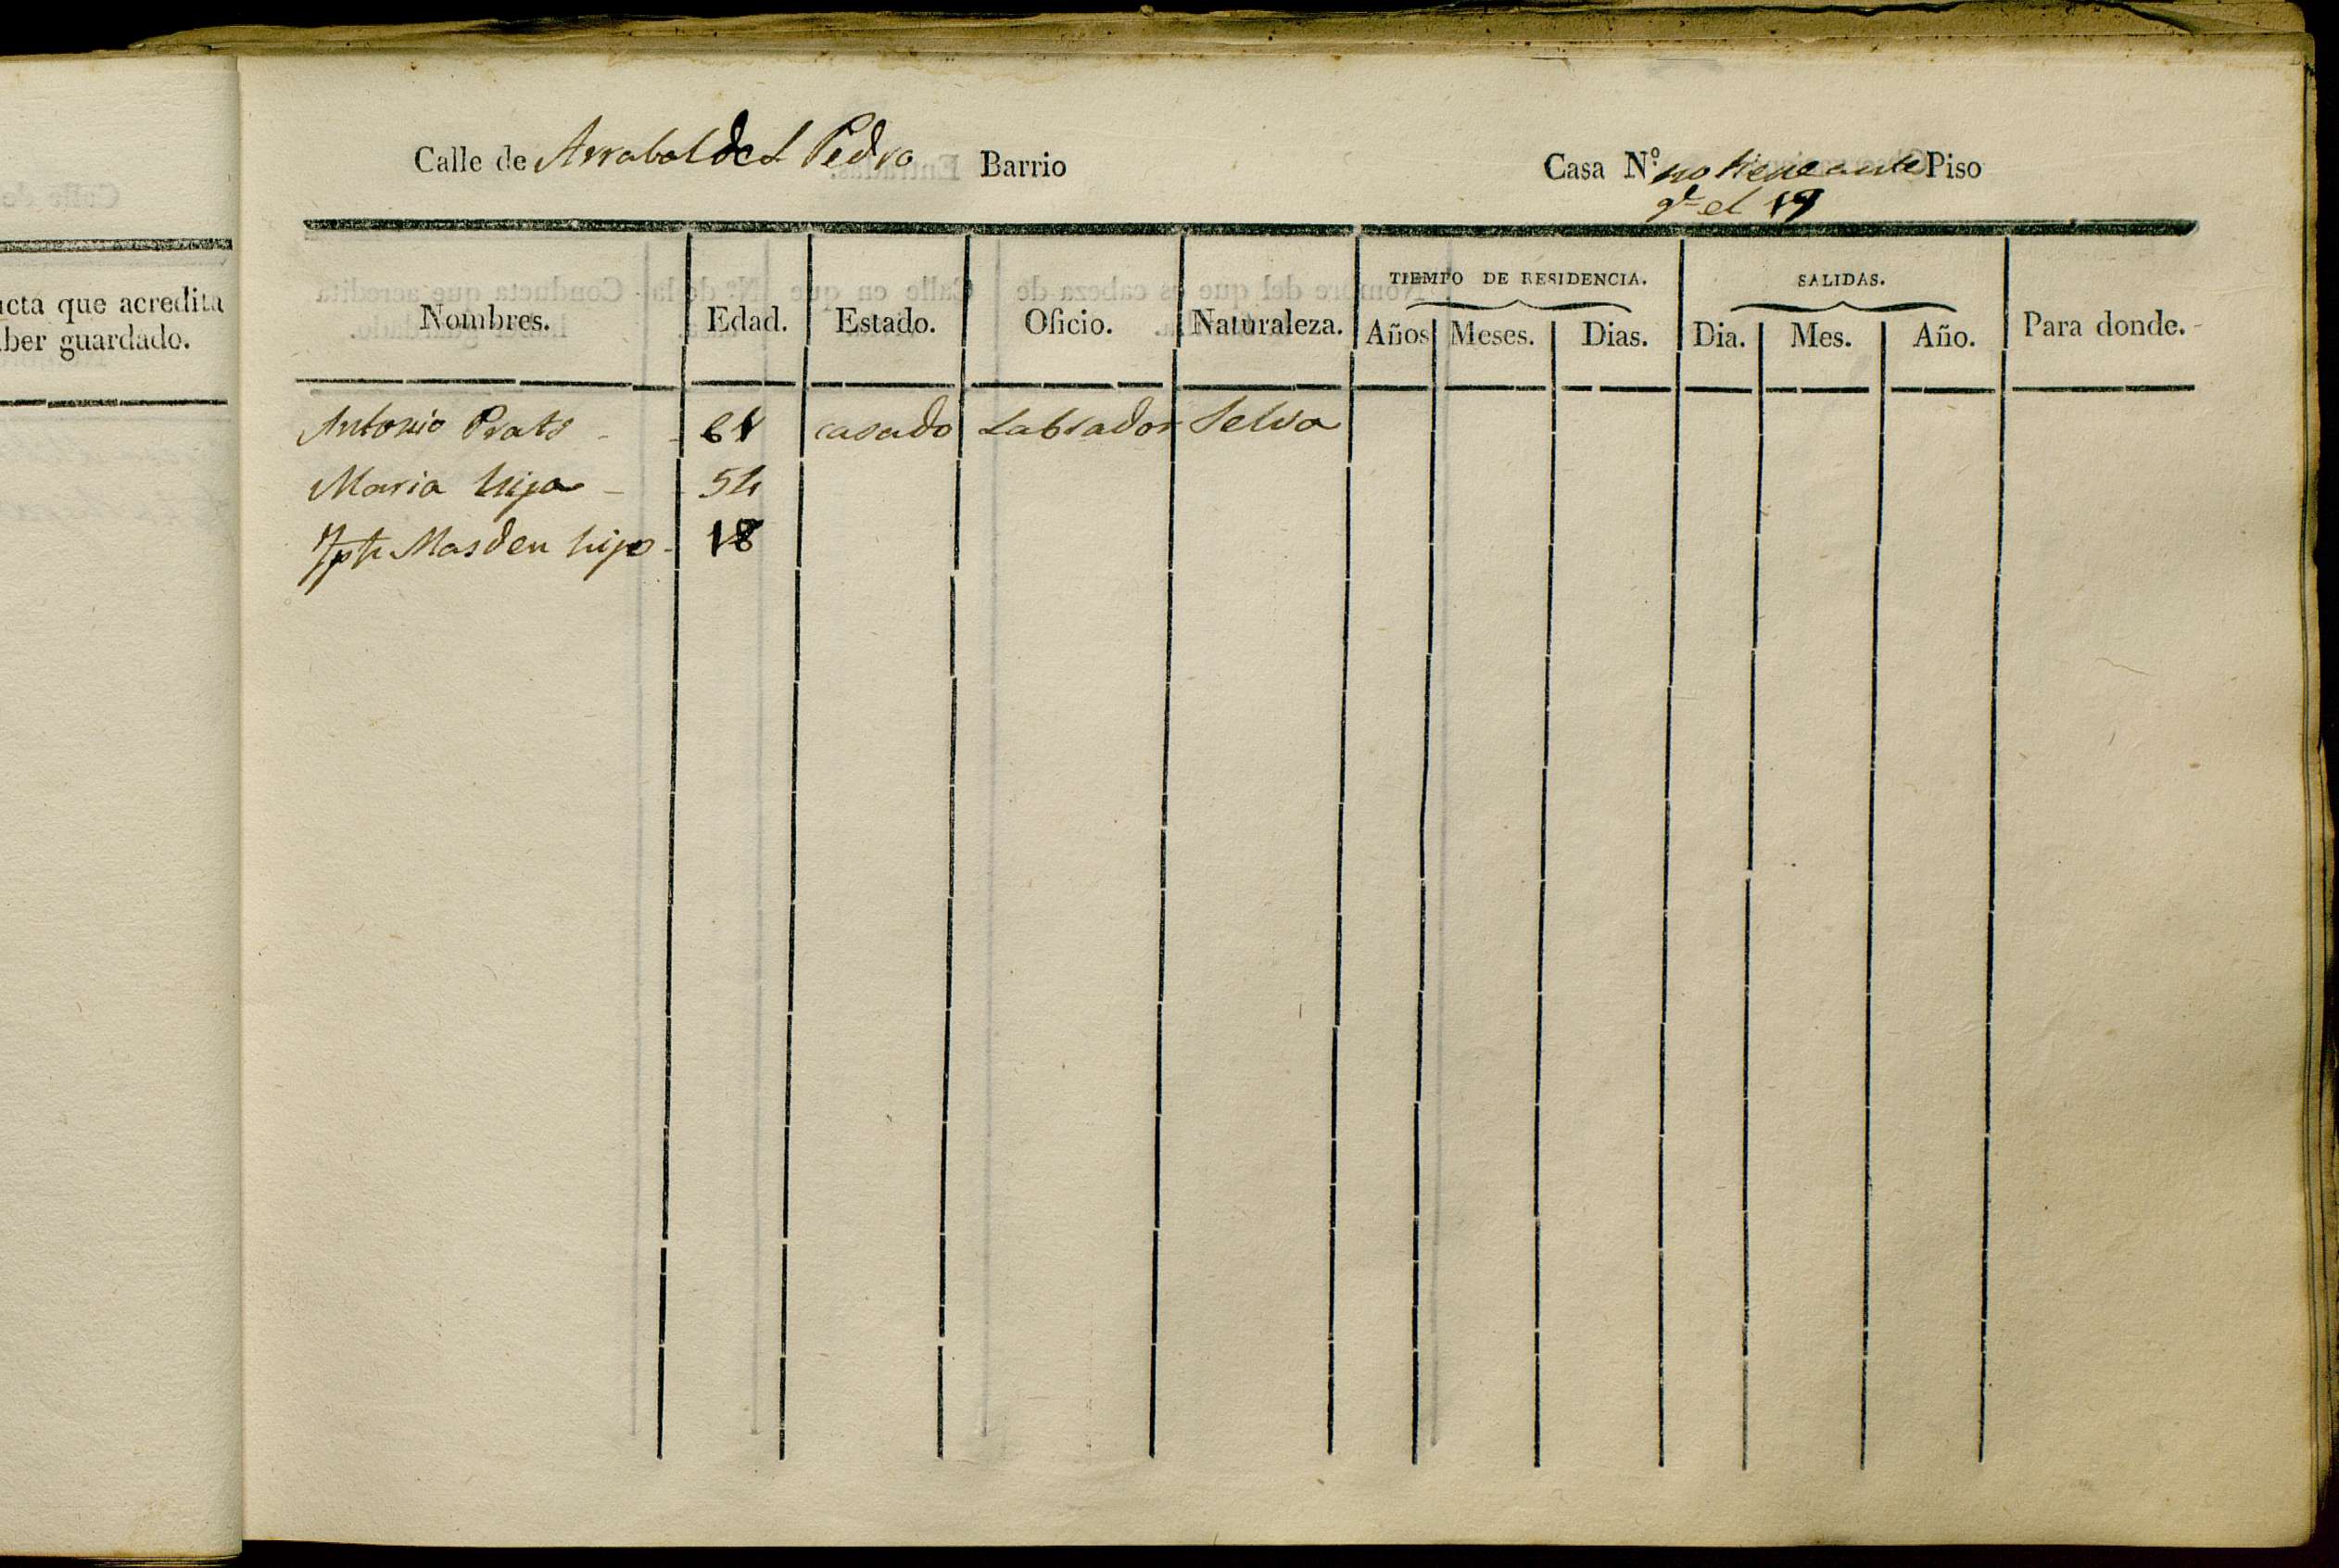 ucta que acredita
ber guardado.
Calle de Arrabal de S Pedro Barrio Casa N.º no tiene ante Piso
q.e el 19
Nombres. Edad. Estado. Oficio. Naturaleza. TIEMPO DE RESIDENCIA. SALIDAS. Para donde.
Años Meses. Dias. Dia. Mes. Año.
Antonio Prats 61 casado Labrador Selva
Maria hija 54
Jph Masdeu hijo 18